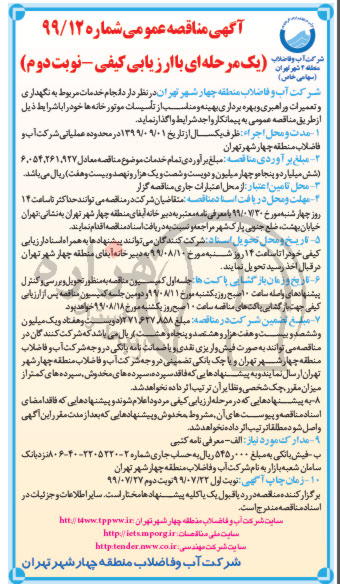 آگهی مناقصه عمومی شماره ۹۹/۱۲
(یک مرحله‌ای با ارزیابی کیفی - نوبت دوم)
شرکت آب و فاضلاب
منطقه ۴ شهر تهران
(سهامی خاص)
شرکت آب و فاضلاب منطقه چهار شهر تهران در نظر دارد انجام خدمات مربوط به نگهداری
و تعمیرات و راهبری و بهره برداری بهینه و مناسب از تأسیسات موتورخانه‌ها خود را با شرایط ذیل
از طریق مناقصه عمومی به پیمانکار واجد شرایط واگذار نماید.
۱- مدت و محل اجراء: ظرف یکسال از تاریخ ۱۳۹۹/۰۹/۰۱ در محدوده عملیاتی شرکت آب و
فاضلاب منطقه چهار شهر تهران
۲- مبلغ برآوردی مناقصه: مبلغ برآوردی تمام خدمات موضوع مناقصه معادل ۶,۰۵۴,۲۶۱,۹۲۷
(شش میلیارد و پنجاه و چهار میلیون و دویست و شصت و یک هزار و نهصد و بیست و هفت) ریال می‌باشد.
۳- محل تامین اعتبار: از محل اعتبارات جاری مناقصه گزار
۴- مهلت و محل دریافت اسناد مناقصه: متقاضیان شرکت در مناقصه می‌توانند حداکثر تا ساعت ۱۴
روز چهارشنبه مورخ ۹۹/۰۷/۳۰ با معرفی نامه معتبر به دبیرخانه آبفای منطقه چهار شهر تهران به نشانی: تهران
خیابان بهشت، ضلع جنوبی پارک شهر مراجعه و نسبت به دریافت اسناد مناقصه اقدام نمایند.
۵- تاریخ و محل تحویل اسناد: شرکت کنندگان می‌توانند پیشنهادها به همراه اسناد ارزیابی
کیفی خود را تا ساعت ۱۴ روز شنبه مورخ ۹۹/۰۸/۱۰ به دبیرخانه آبفای منطقه چهار شهر تهران
در قبال اخذ رسید تحویل نمایند.
۶- تاریخ و زمان بازگشایی پاکت ها: جلسه اول کمیسیون مناقصه به منظور تحویل و بررسی و کنترل
پیشنهادهای واصله ساعت ۱۰ صبح روز یکشنبه مورخ ۹۹/۰۸/۱۱ و دومین جلسه کمیسیون مناقصه پس از ارزیابی
کیفی جهت بازگشایی پاکت‌های مناقصه ساعت ۱۰ صبح روز یکشنبه مورخ ۹۹/۰۸/۱۸ خواهد بود.
۷- مبلغ تضمین شرکت در مناقصه: مبلغ ۲۷۱,۶۲۷,۸۵۸ (دویست و هفتاد و یک میلیون
و ششصد و بیست و هفت هزار و هشتصد و پنجاه و هشت) ریال می‌باشد که شرکت کنندگان در
مناقصه می‌توانند به صورت فیش واریزی نقدی و یا ضمانت نامه بانکی در وجه شرکت آب و فاضلاب
منطقه چهار شهر تهران و یا چک بانکی تضمینی در وجه شرکت آب و فاضلاب منطقه چهار شهر
تهران ارسال نمایند و به پیشنهادهایی که فاقد سپرده، سپرده‌های مخدوش، سپرده‌های کمتر از
میزان مقرر، چک شخصی و نظایر آن ترتیب اثر داده نخواهد شد.
۸- به پیشنهادهایی که در مرحله ارزیابی کیفی مردود اعلام شوند و پیشنهادهایی که فاقد امضای
اسناد مناقصه و پیوست‌های آن، مشروط، مخدوش و پیشنهادهایی که بعد از مدت مقرر این آگهی
واصل شود مطلقا ترتیب اثر داده نخواهد شد.
۹- مدارک مورد نیاز: الف- معرفی نامه کتبی
برگزارکننده مناقصه در رد یا قبول یک یا کلیه پیشنهادها مختار است. سایر اطلاعات و جزئیات در
اسناد مناقصه مندرج است.
سایت شرکت آب و فاضلاب منطقه چهار شهر تهران: htt://t4ww.tppww.ir
سایت ملی مناقصات: http://iets.mporg.ir
سایت شرکت مهندسی: http:tender.nww.co.ir
شرکت آب و فاضلاب منطقه چهار شهر تهران